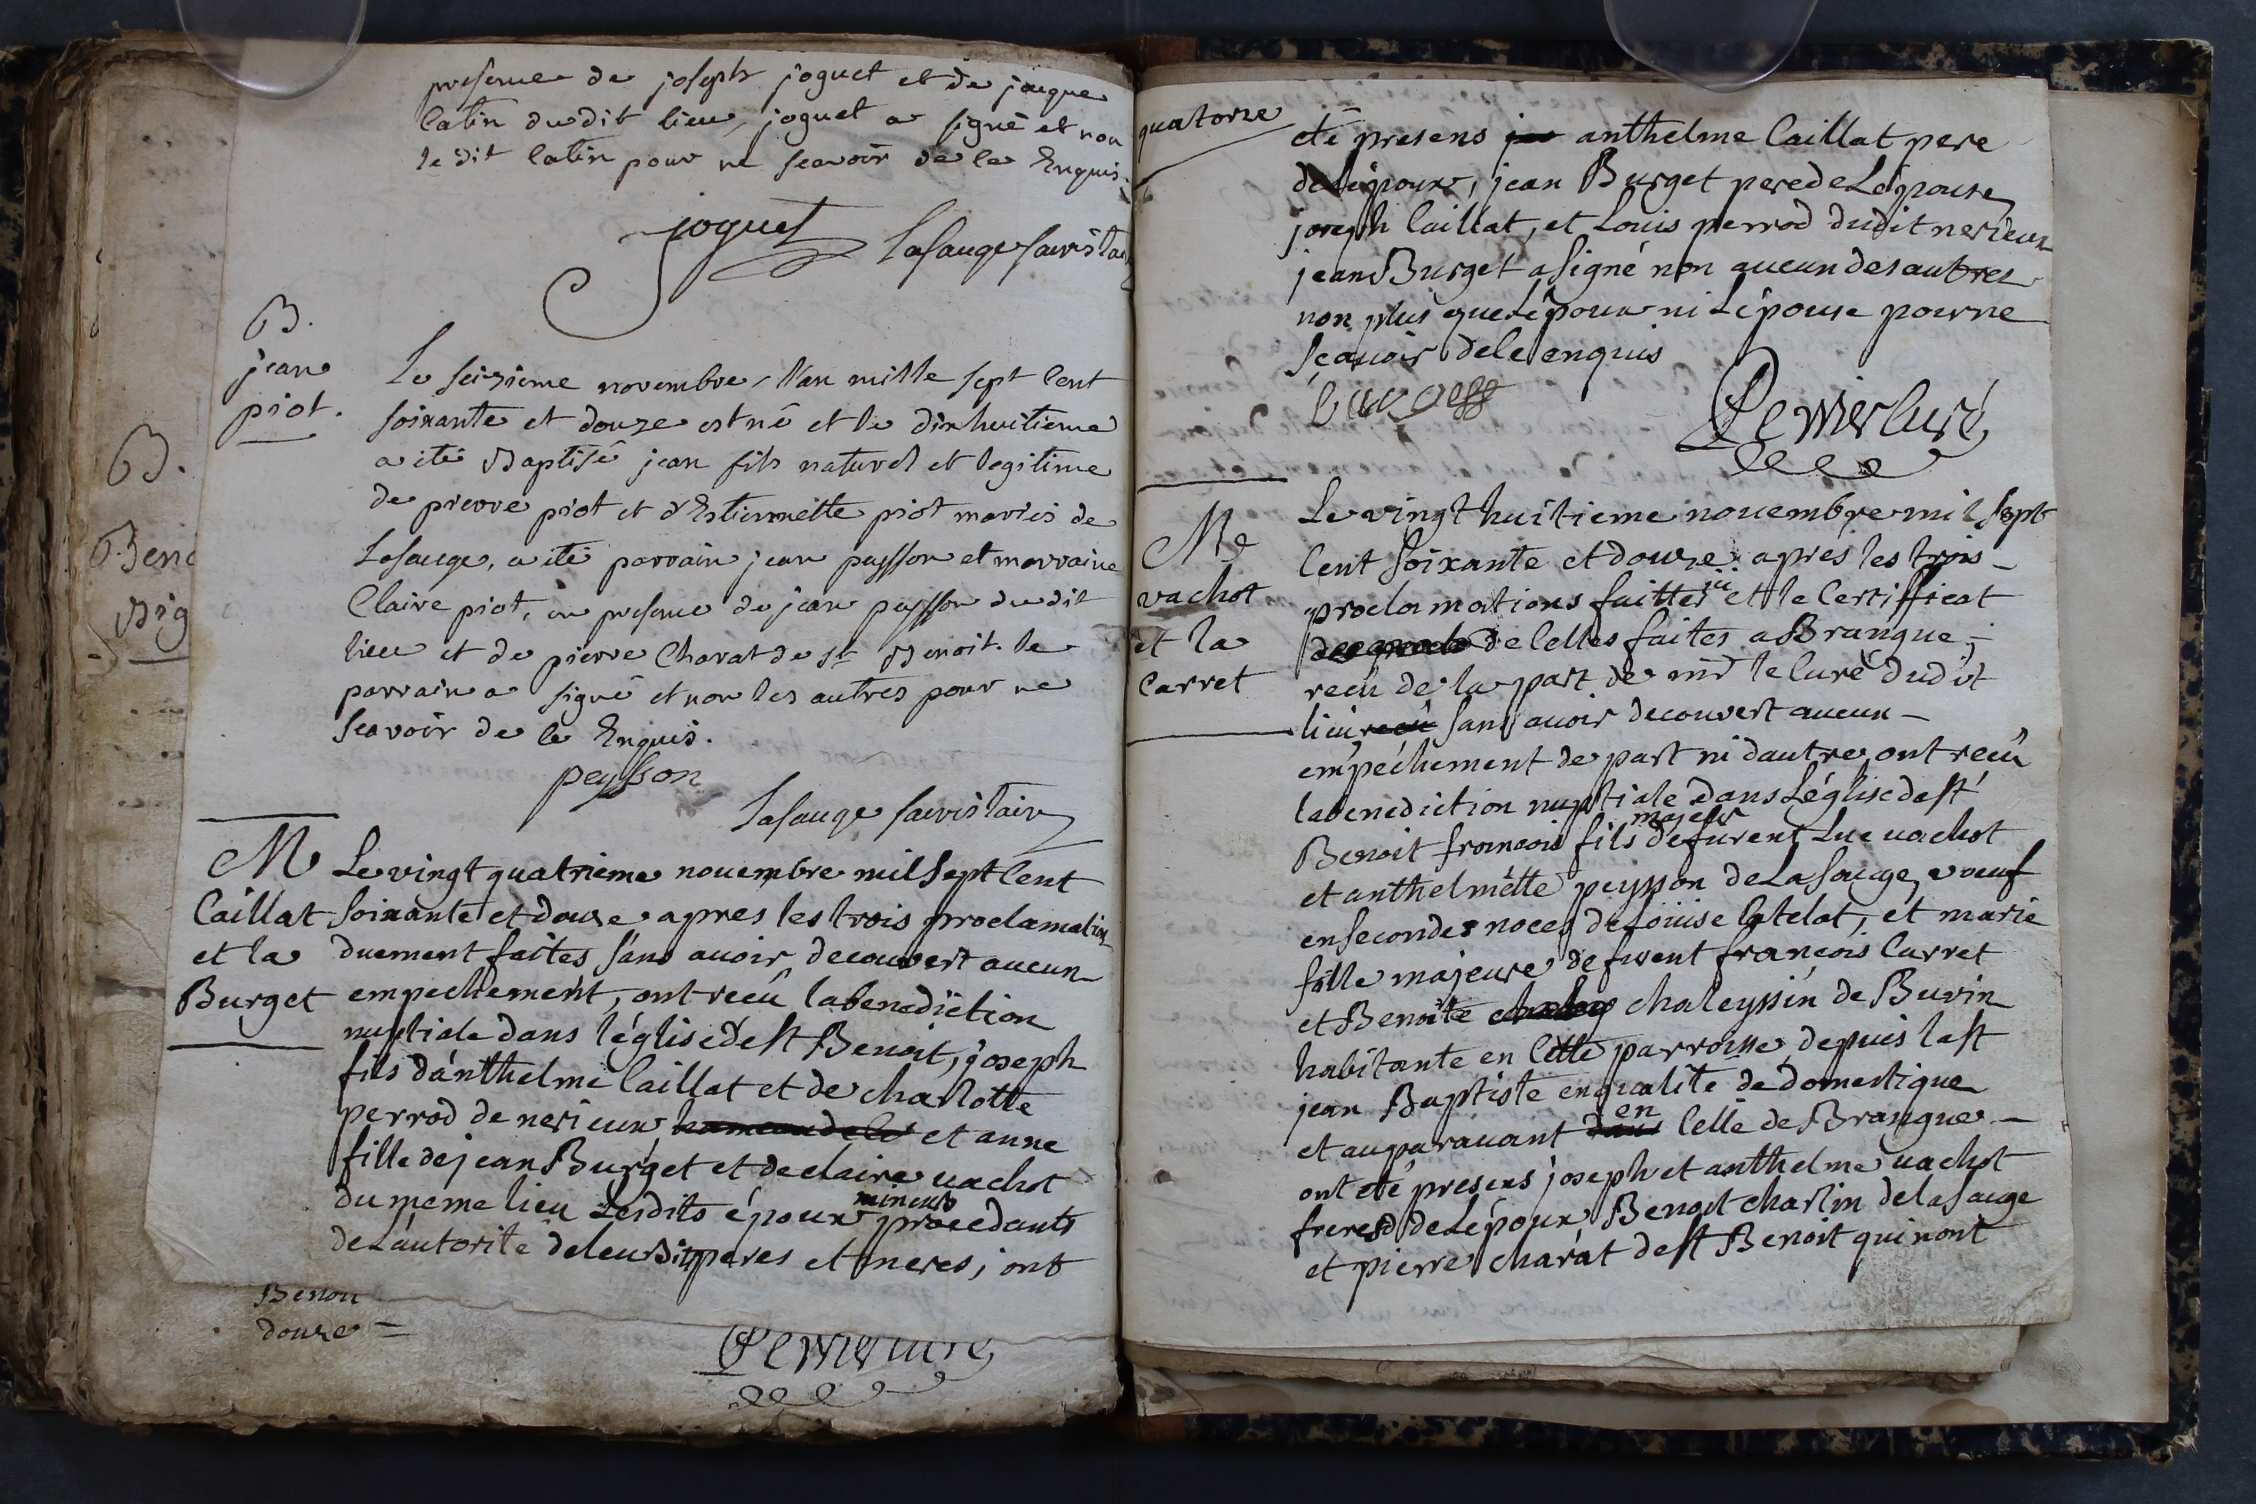 presence de joseph joguet et de jacque
Catin dudit lieu, joguet a signé et non
le dit Catin pour ne scavoir de ce Enquis.
joguet
Lasauge sacristain
B.
jean
piot.
Le seizieme novembre, l'an mille sept cent
soixante et douze est né et le dixhuitieme
a été Baptisé jean fils naturel et legitime
de pierre piot et d'Estiennette piot mariés de
Lasauge, a été parrain jean peysson et marraine
Claire piot, en presence de jean peysson dudit
lieu et de pierre Charat de st Benoit. le
parrain a signé et non les autres pour ne
scavoir de ce Enquis.
peysson
Lasauge sacristain
M
Caillat
et la
Burget
Le vingt quatrieme novembre mil sept cent
soixante et douze apres les trois proclamation
duement faites sans avoir decouvert aucun
empechement, ont recû la benediction
nuptiale dans l'église de st Benoit, joseph
fils d'anthelme Caillat et de charlotte
perrod de nerieux hameau de ce et anne
fille de jean Burget et de claire vachot
du meme lieu Lesdits époux mineurs procedants
de L'autorité de leurdits peres et meres, ont
B.
Bend
Big
Benon
douze =
Perrier curé
quatorze
eté presens jos anthelme Caillat pere
de L'époux, jean Burget pere de L'épouse
joseph Caillat, et Louis perrod dudit nerieux
jean Burget a signé non aucun des autres
non plus que L'époux ni L'épouse pour ne
scavoir de ce enquis
burgeff
Perrier curé
Me
vachot
et la
Carret
Le vingt huitieme novembre mil sept
cent soixante et douze apres les trois
proclamations faittes ici et le Certifficat
des procla de celles faites a Brangue,
recu de la part de mr le curé dudit
lieu recû sans avoir decouvert aucun
empéchement de part ni dautre, ont recû
la benediction nuptiale dans L'église de st
Benoit francois fils majeur de furent Luc vachot
et anthelmette peysson de La sauge veuf
en secondes noces de Loüise Catelat, et marie
fille majeure de furent françois Carret
et Benoite chaley chaleyssin de Buvin
habitante en Cette parroisse depuis la st
jean Baptiste en qualite de domestique
et auparavant dans en Celle de Brangue
ont été presens joseph et anthelme vachot
freres de L'époux, Benoit charlin de la sauge
et pierre charat de st Benoit qui n'ont